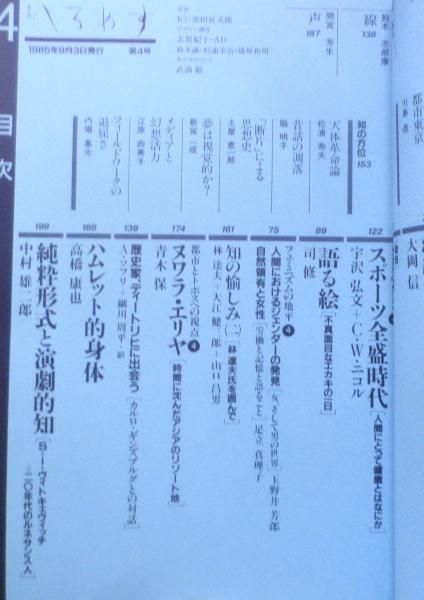 鈴木 志郎康
線
138
間宮 芳生
声
187
K2・黒田征太郎
志賀紀子・AD
へるめす
1985年9月3日発行 第4号
4
目次
都市東京
大岡 信
知の方位 153
天体革命論
松浦 寿夫
昔話の凋落
脇 明子
「断片」による思想史
土屋 恵一郎
夢は視覚的か?
新宮 一成
メディアと幻想活力
江原 由美子
フィールドワークの退屈さ
内堀 基光
122
スポーツ全盛時代[人間にとって健康とはなにか]
宇沢 弘文+C・W・ニコル
89
語る絵[不真面目なエカキの一日]
司 修
75
フェミニズムの地平 4
人間におけるジェンダーの発見[女、そして男の世界]玉野井 芳郎
自然領有と女性[労働と記憶と語ること]足立 真理子
161
知の愉しみ(二)[林達夫氏を囲んで]
林 達夫+大江 健三郎+山口 昌男
174
都市とトポスの視点 4
ヌワラ・エリヤ[時間に沈んだアジアのリゾート地]
青木 保
139
歴史家、ディートリヒに出会う[カルロ・ギンズブルグとの対話]
A・ソフリ・細川 周平・訳
188
ハムレット的身体
高橋 康也
199
純粋形式と演劇的知[S・I・ヴィトキエヴィッチ=二〇年代のルネサンス人]
中村 雄二郎